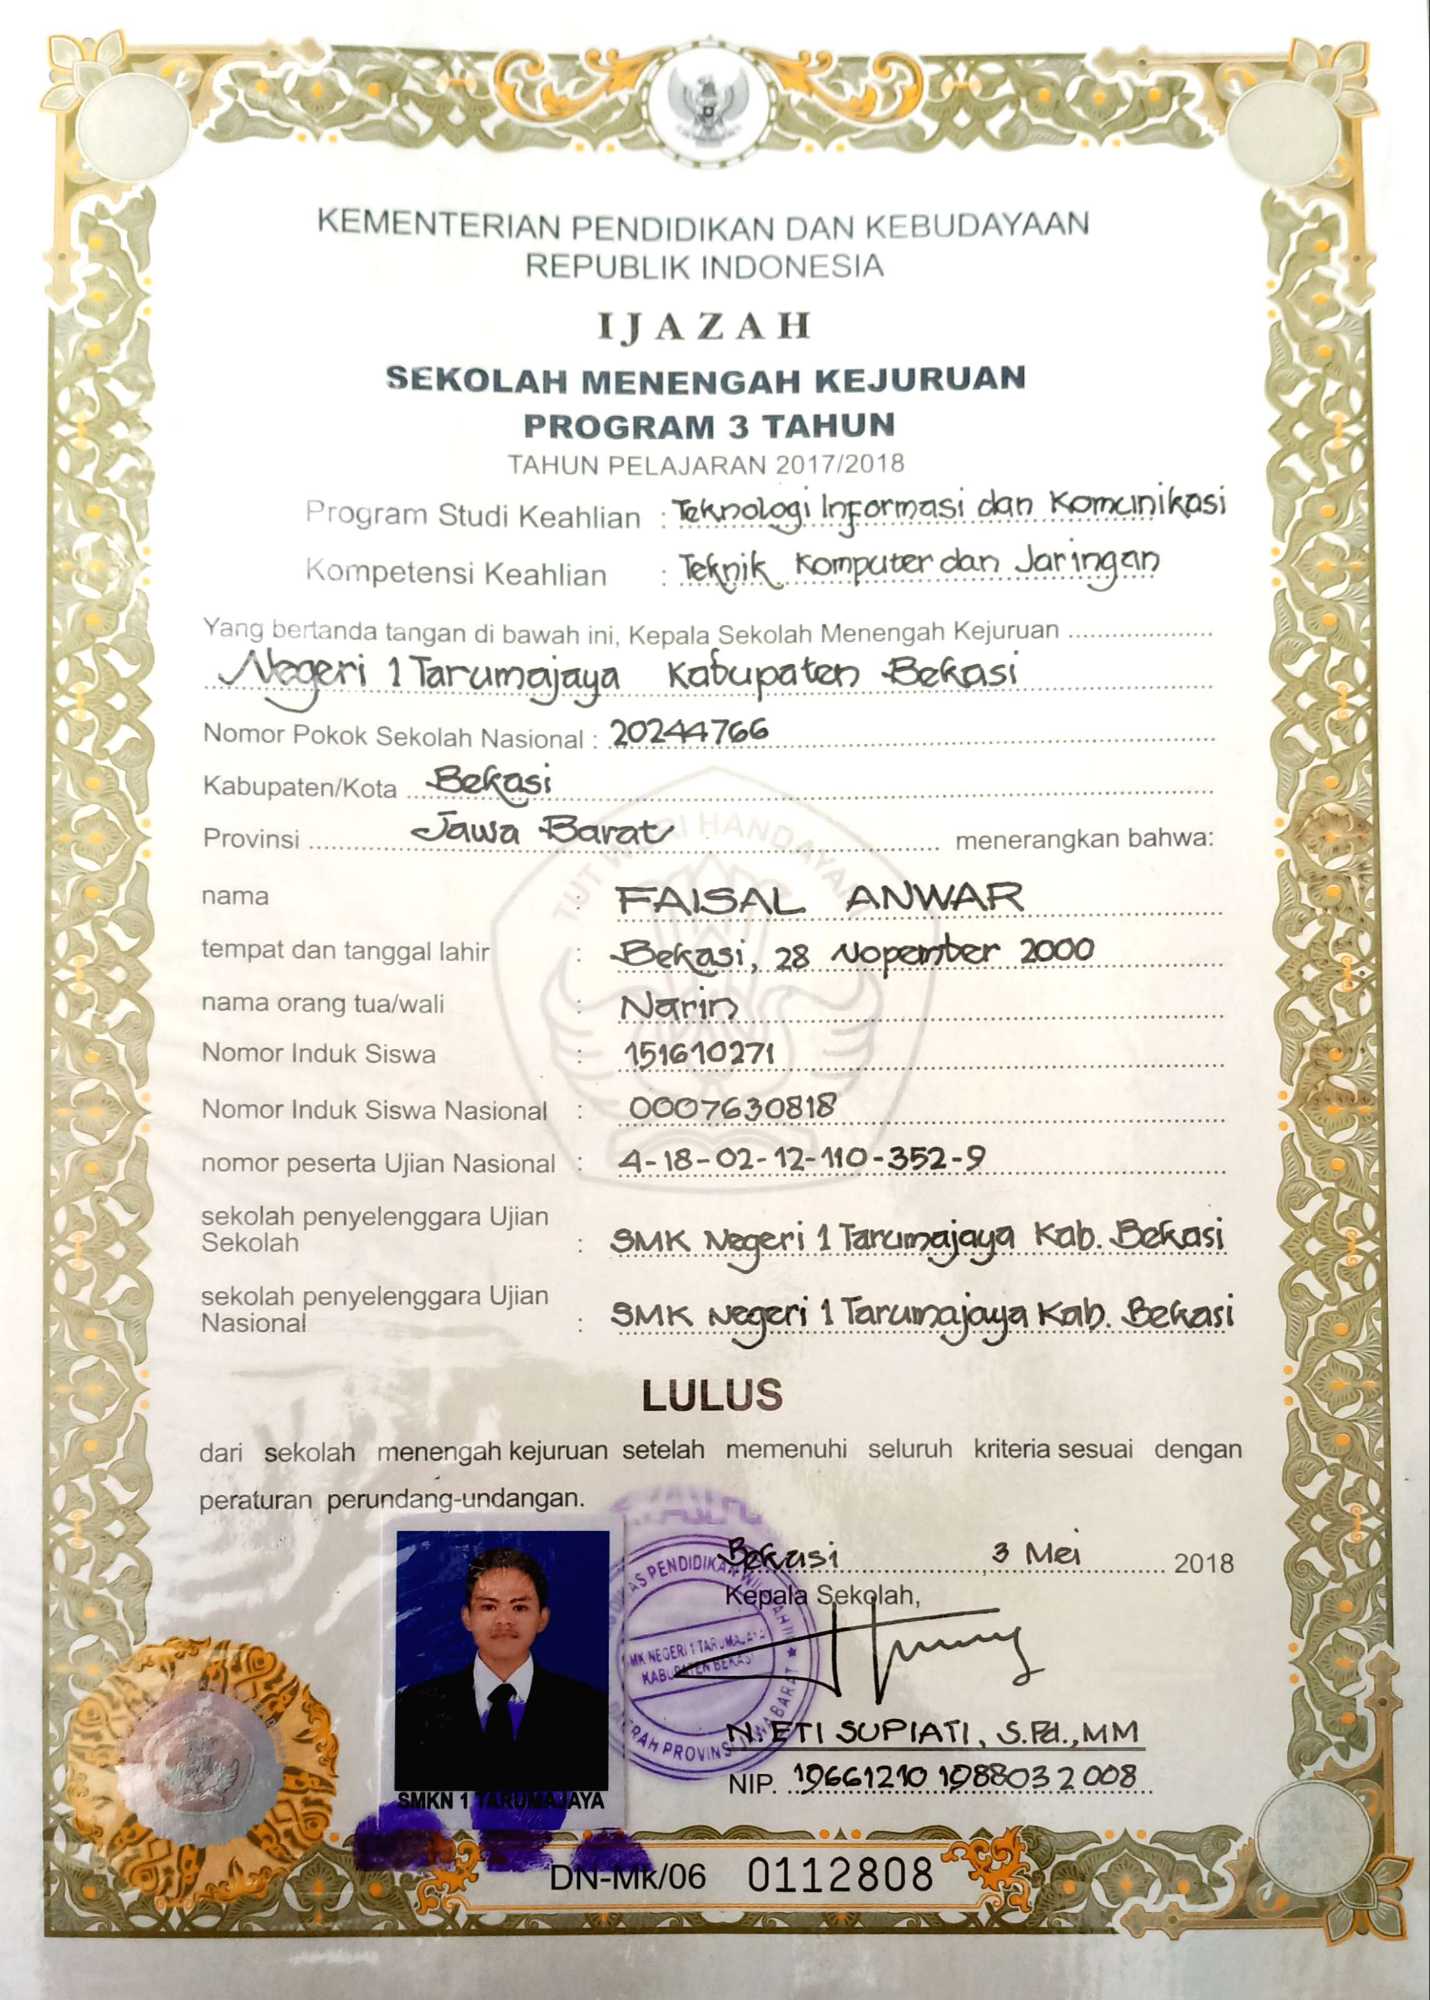 KEMENTERIAN PENDIDIKAN DAN KEBUDAYAAN
REPUBLIK INDONESIA
IJAZAH
SEKOLAH MENENGAH KEJURUAN
PROGRAM 3 TAHUN
TAHUN PELAJARAN 2017/2018
Program Studi Keahlian : Teknologi Informasi dan Komunikasi
Kompetensi Keahlian : Teknik Komputer dan Jaringan
Yang bertanda tangan di bawah ini, Kepala Sekolah Menengah Kejuruan
Negeri 1 Tarumajaya Kabupaten Bekasi
Nomor Pokok Sekolah Nasional : 20244766
Kabupaten/Kota Bekasi
Provinsi Jawa Barat menerangkan bahwa:
TUT WURI HANDAYANI
nama : FAISAL ANWAR
tempat dan tanggal lahir : Bekasi, 28 Nopember 2000
nama orang tua/wali : Narin
Nomor Induk Siswa : 151610271
Nomor Induk Siswa Nasional : 0007630818
nomor peserta Ujian Nasional : 4-18-02-12-110-352-9
sekolah penyelenggara Ujian
Sekolah : SMK Negeri 1 Tarumajaya Kab. Bekasi
sekolah penyelenggara Ujian
Nasional : SMK Negeri 1 Tarumajaya Kab. Bekasi
LULUS
dari sekolah menengah kejuruan setelah memenuhi seluruh kriteria sesuai dengan
peraturan perundang-undangan.
Bekasi, 3 Mei 2018
Kepala Sekolah,
PENDIDIKAN
MK NEGERI 1 TARUMAJAYA
KABUPATEN BEKASI
PROVINSI JAWA BARAT
N. ETI SUPIATI, S.Pd., MM
NIP. 19661210 198803 2 008
SMKN 1 TARUMAJAYA
DN-Mk/06 0112808